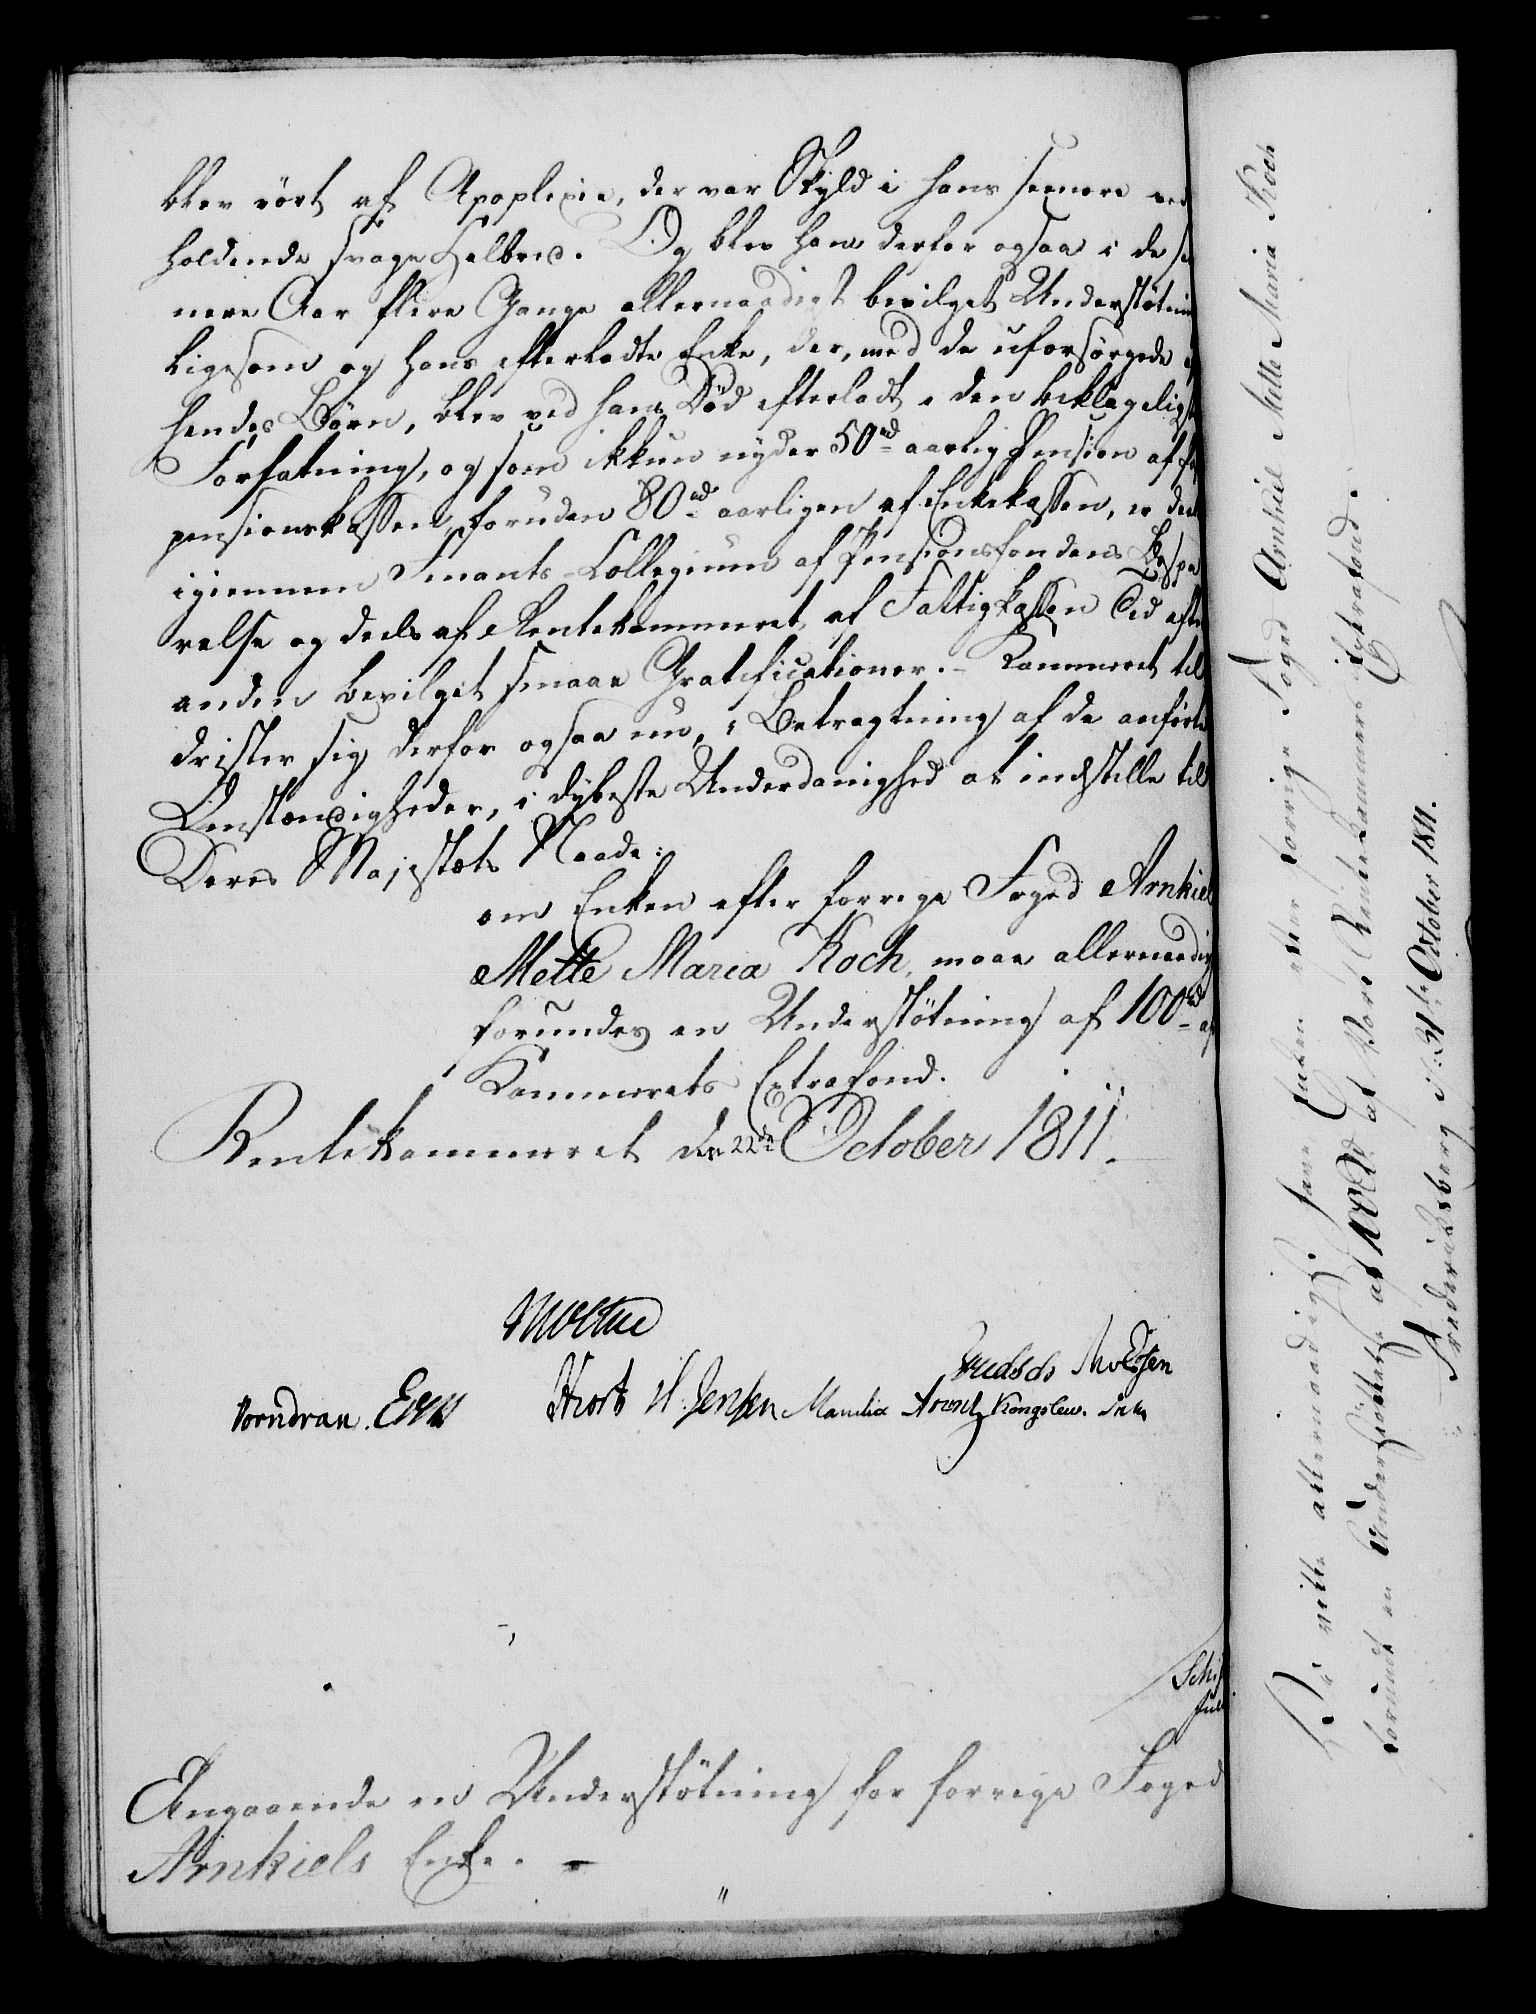 blev rört af Apoplexie, der var Skyld i hans senere ved
holdende svage Helbred. Og blev ham derfor ogsaa i de se
nere Aar flere Gange allernaadigst bevilget Understötnin
ligesom og hans efterladte Enke, der, med de uforsörgede af
hendes Börn, blev ved hans Död efterladt i den beklageligste
Forfatning, og som ikkun nyder 50 rd aarlig Pension af
pensionskassen, foruden 80 rd aarligen af Enkekassen, er deels
igiennem Finants-Collegium af Pensionsfondens Bespa
relse og deels af Rentekammeret af Fattigkassen Tid efter
anden bevilget smaae Gratificationer. - Kammeret til
drister sig derfor ogsaa nu, i Betragtning af de anförte
Omstændigheder, i dybeste Underdanighed at indstille til
Deres Majestæts Naade:
om Enken efter forrige Foged Arnkiel
Mette Maria Koch, maae allernaadig
forundes en Understötning af 100 rd af
Kammerets Extrafond.
Rentekammeret den 22de October 1811.
Moltke
Knudsen
Vorndran. Hiort H. Jensen Manthe Arentz Kongslew.
Angaaende en Understötning for forrige Foged
Arnkiels Enke. -
Vi ville allernaadigst have Enken efter forrige Foged Arnkiel Mette Maria Koch
forundt en Understöttelse af 100 rd af Vort Rentekammers Extrafond.
Frederiksberg d: 31te October 1811.